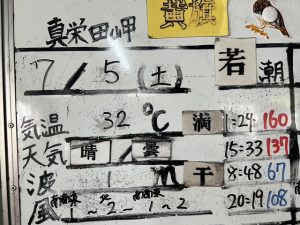 真栄田岬
黄慎
7/5(土)
若潮
気温 32℃ 満 1:24 160
天気 晴/曇 15:33 137
波 1 m 干 8:48 67
風 南南東 1~2 北 南南東 1~2 20:19 108